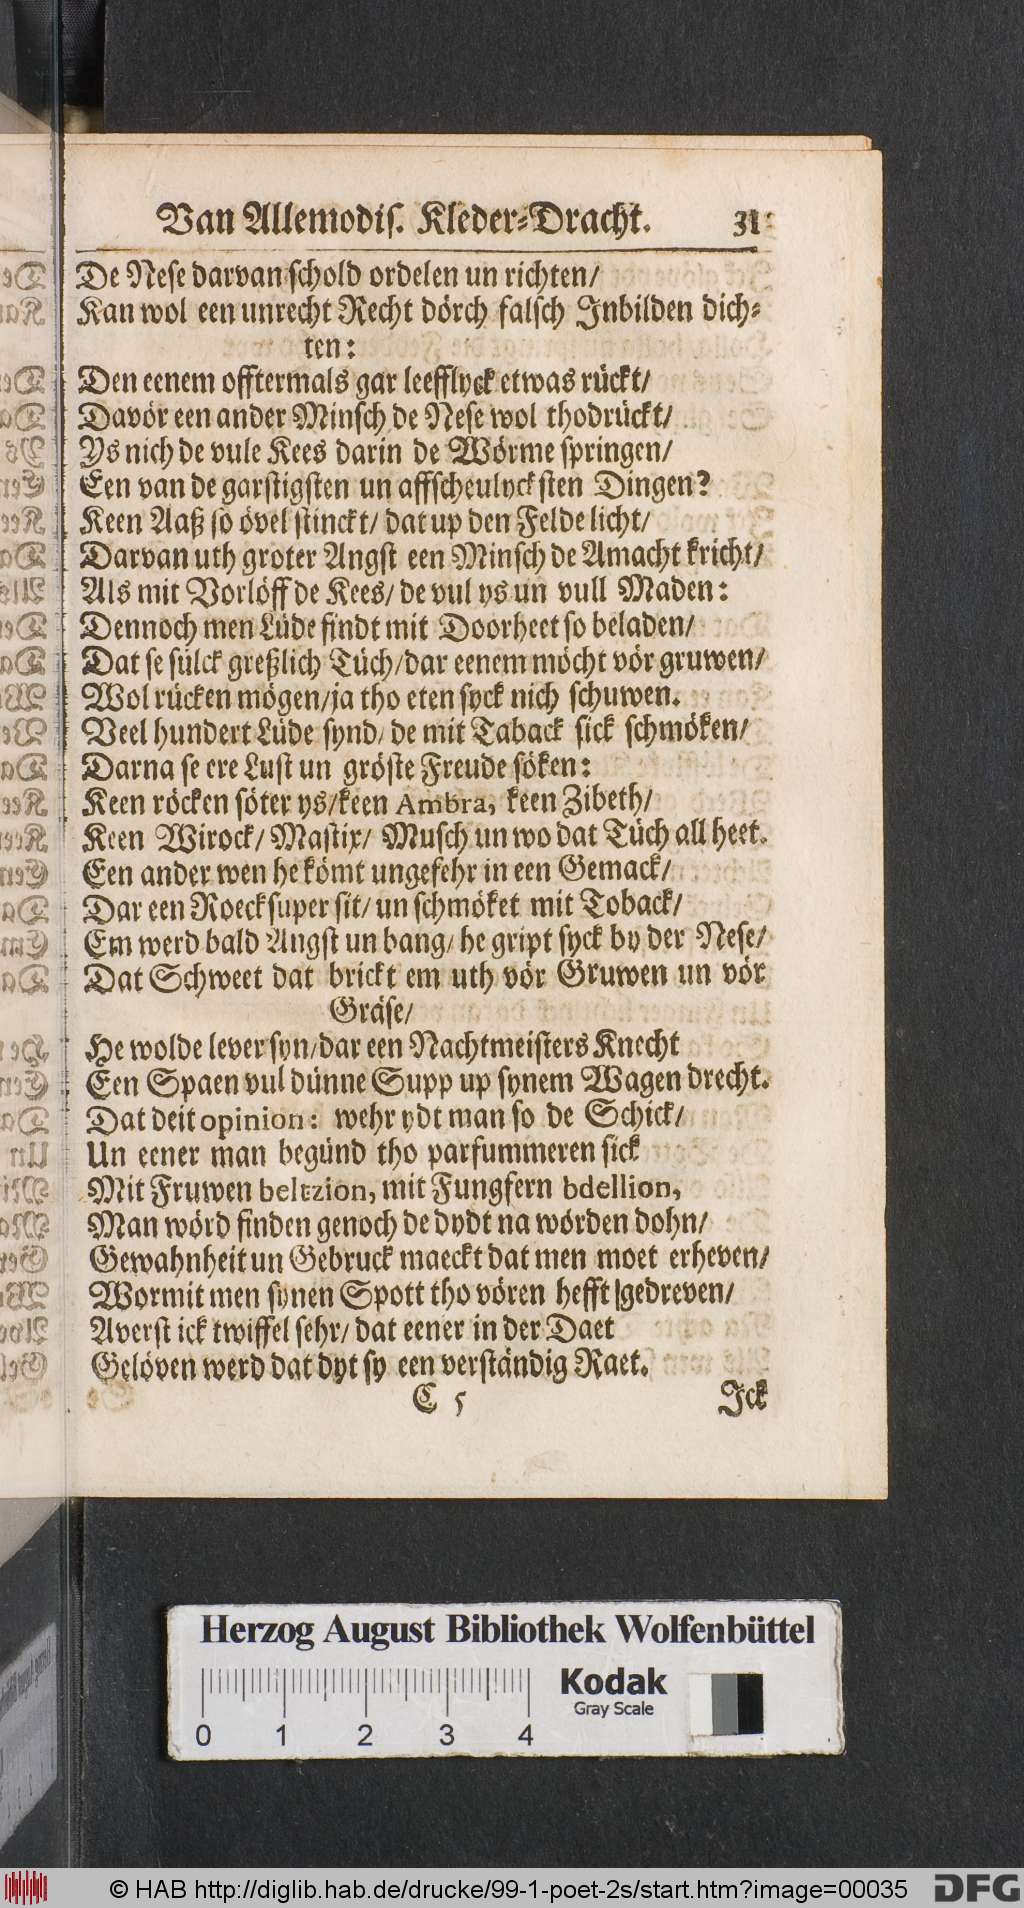 Van Allemodis. Kleder-Dracht. 31
De Nese darvan schold ordelen un richten/
Kan wol een unrecht Recht dörch falsch Inbilden dich-
ten:
Den eenem offtermals gar leefflyck etwas rückt/
Davör een ander Minsch de Nese wol thodrückt/
Ys nich de vule Kees darin de Wörme springen/
Een van de garstigsten un affscheulycksten Dingen?
Keen Aaß so övel stinckt/ dat up den Felde licht/
Darvan uth groter Angst een Minsch de Amacht kricht/
Als mit Vorlöff de Kees/ de vul ys un vull Maden:
Dennoch men Lüde findt mit Doorheet so beladen/
Dat se sülck greßlich Tüch/ dar eenem möcht vör gruwen/
Wol rücken mögen/ ja tho eten syck nich schuwen.
Veel hundert Lüde synd/ de mit Taback sick schmöken/
Darna se ere Lust un gröste Freude söken:
Keen röcken söter ys/ keen Ambra, keen Zibeth/
Keen Wirock/ Mastix/ Musch un wo dat Tüch all heet.
Een ander wen he kömt ungefehr in een Gemack/
Dar een Roecksuper sit/ un schmöket mit Toback/
Em werd bald Angst un bang/ he gript syck by der Nese/
Dat Schweet dat brickt em uth vör Gruwen un vör
Gräse/
He wolde lever syn/ dar een Nachtmeisters Knecht
Een Spaen vul dünne Supp up synem Wagen drecht.
Dat deit opinion: wehr ydt man so de Schick/
Un eener man begünd tho parfummeren sick
Mit Fruwen beltzion, mit Fungfern bdellion,
Man wörd finden genoch de dydt na wörden dohn/
Gewahnheit un Gebruck maeckt dat men moet erheven/
Wormit men synen Spott tho vören hefft gedreven/
Averst ick twiffel sehr/ dat eener in der Daet
Gelöven werd dat dyt sy een verständig Raet.
C 5 Ick
Herzog August Bibliothek Wolfenbüttel
Kodak
Gray Scale
0 1 2 3 4
© HAB http://diglib.hab.de/drucke/99-1-poet-2s/start.htm?image=00035 DFG